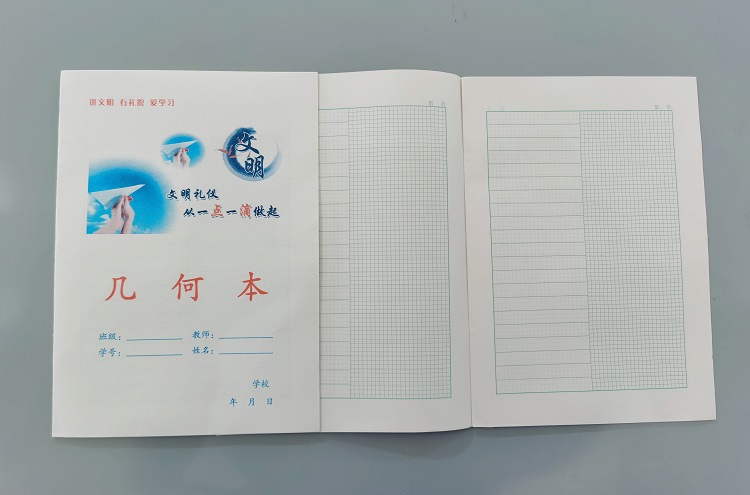 讲文明 有礼貌 爱学习
文明
文明礼仪
从一点一滴做起
几何本
班级： 教师：
学号： 姓名：
学校
年 月 日